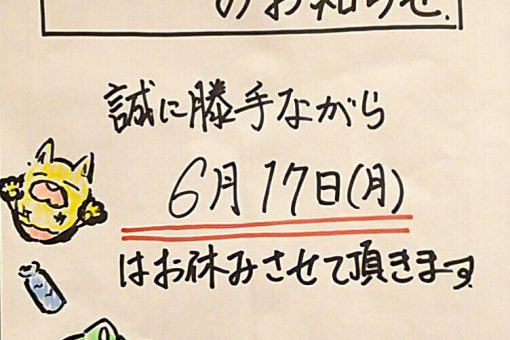 のお知らせ.
誠に勝手ながら
6月17日(月)
はお休みさせて頂きます